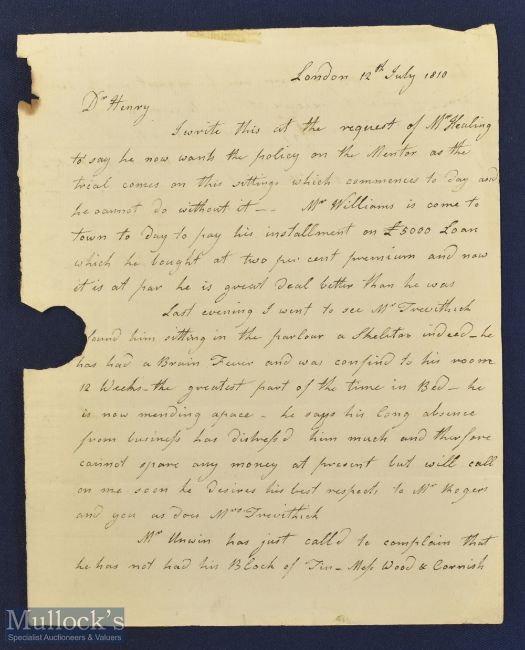 London 12th July 1810
Dr Henry
I write this at the request of Mr Healing
to say he now wants the policy on the Mentor as the
trial comes on this sittings which commences to day and
he cannot do without it — Mr Williams is come to
town to day to pay his installment on £5000 Loan
which he bought at two per cent premium and now
it is at par he is great deal better than he was
Last evening I went to see Mr Trevithick
found him sitting in the parlour a Skeliton indeed — he
has had a Brain Fever and was confind to his room
12 Weeks — the greatest part of the time in Bed — he
is now mending apace — he says his long absence
from business has distress'd him much and therfore
cannot spare any money at present but will call
on me soon he desires his best respects to Mr Rogers
and you as does Mrs Trevithick
Mr Unwin has just call'd to complain that
he has not had his Block of Tin — Mess Wood & Cornish
Mullock's
Specialist Auctioneers & Valuers